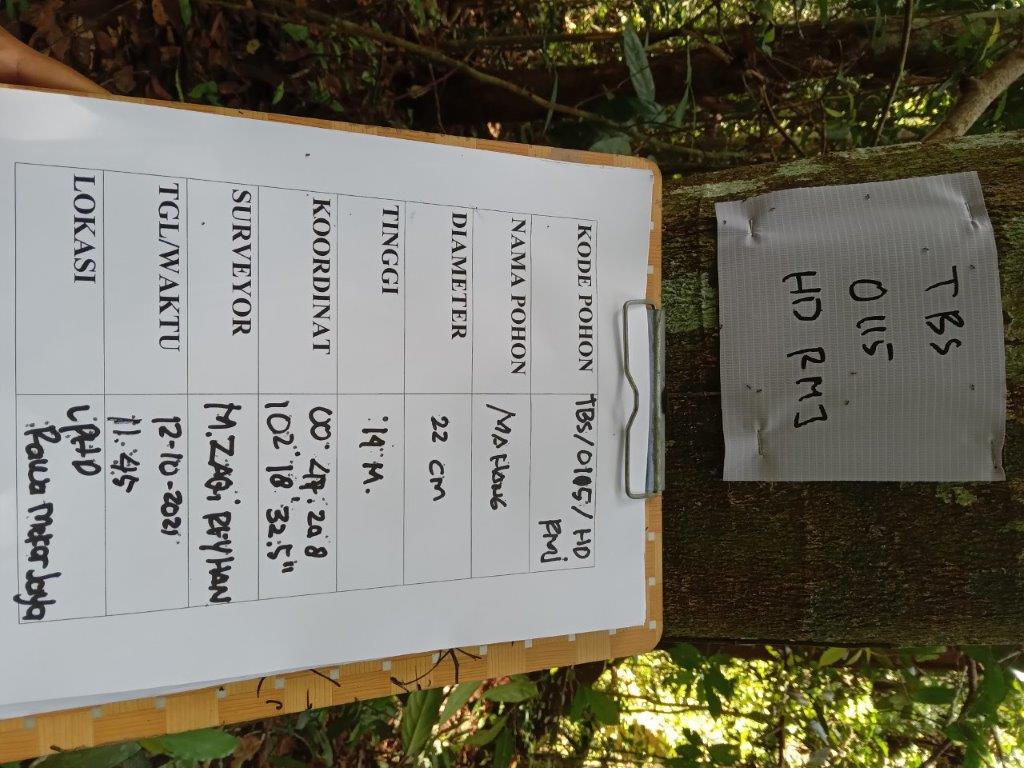 TBS
0115
HD RMJ
KODE POHON TBS/0115/ HD
RMJ
NAMA POHON MAHANG
DIAMETER 22 cm
TINGGI 14 M.
KOORDINAT 00° 47. 20 8
102° 18' 32.5"
SURVEYOR M. ZAQi REYHAN
TGL/WAKTU 12-10-2021
11.45
LOKASI LPHD
Rawa mekar Jaya